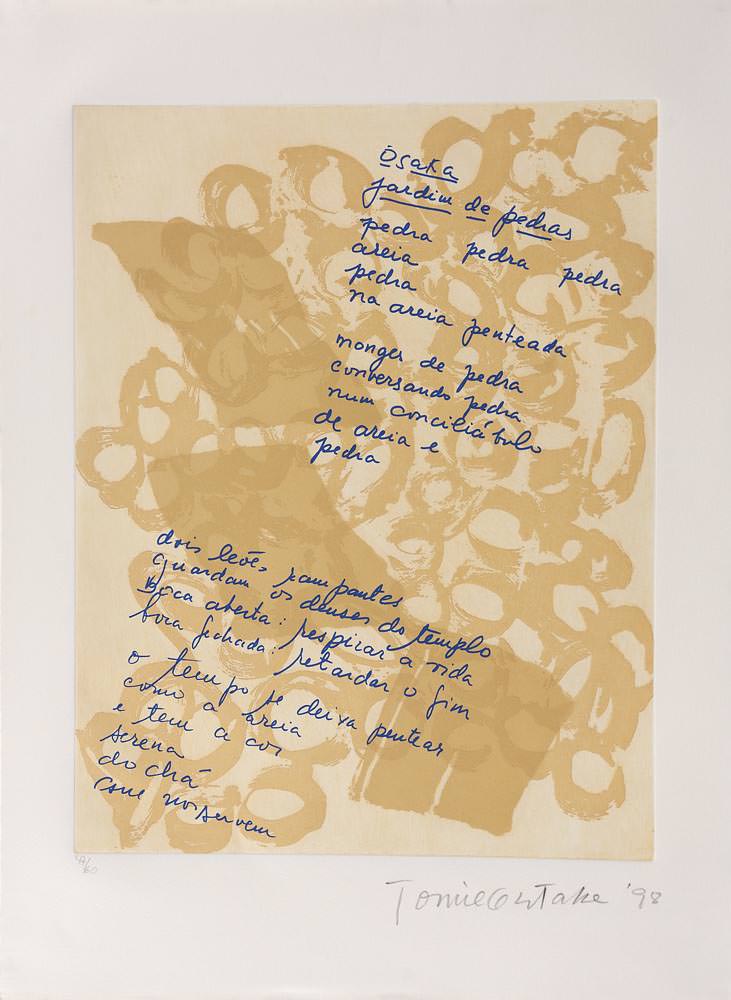 ōsaka
jardim de pedras
pedra pedra pedra
areia
pedra
na areia penteada
monges de pedra
conversando pedra
num conciliábulo
de areia e
pedra
dois leões rampantes
guardam os deuses do templo
boca aberta: respirar a vida
boca fechada: retardar o fim
o tempo se deixa pentear
como a areia
e tem a cor
serena
do chá
que nos servem
/60
Tomie Ohtake '98